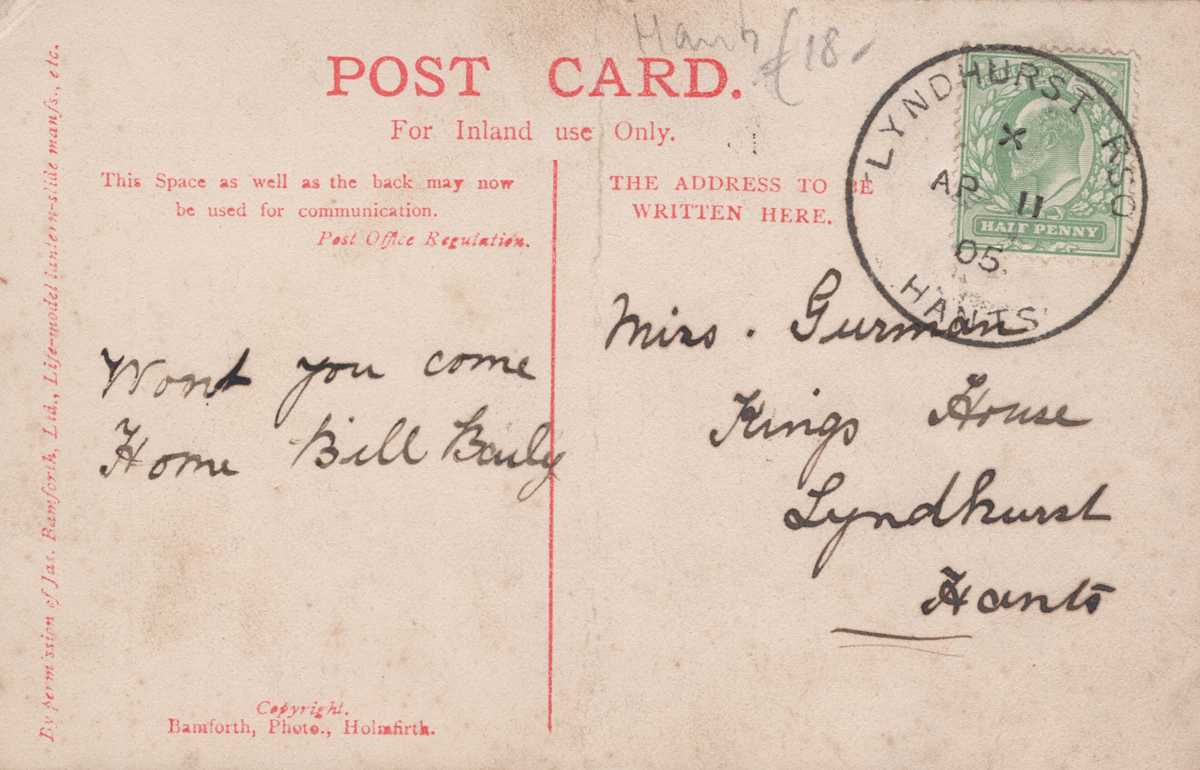 Hants £18-
POST CARD.
For Inland use Only.
This Space as well as the back may now
be used for communication.
Post Office Regulation.
THE ADDRESS TO BE
WRITTEN HERE.
LYNDHURST RSO
X
AP 11
05
HANTS
HALF PENNY
Wont you come
Home Bill Baily
Miss. Gurman
Kings House
Lyndhurst
Hants
Copyright.
Bamforth, Photo., Holmfirth.
By permission of Jas. Bamforth, Ltd., Life-model lantern-slide manfs., etc.